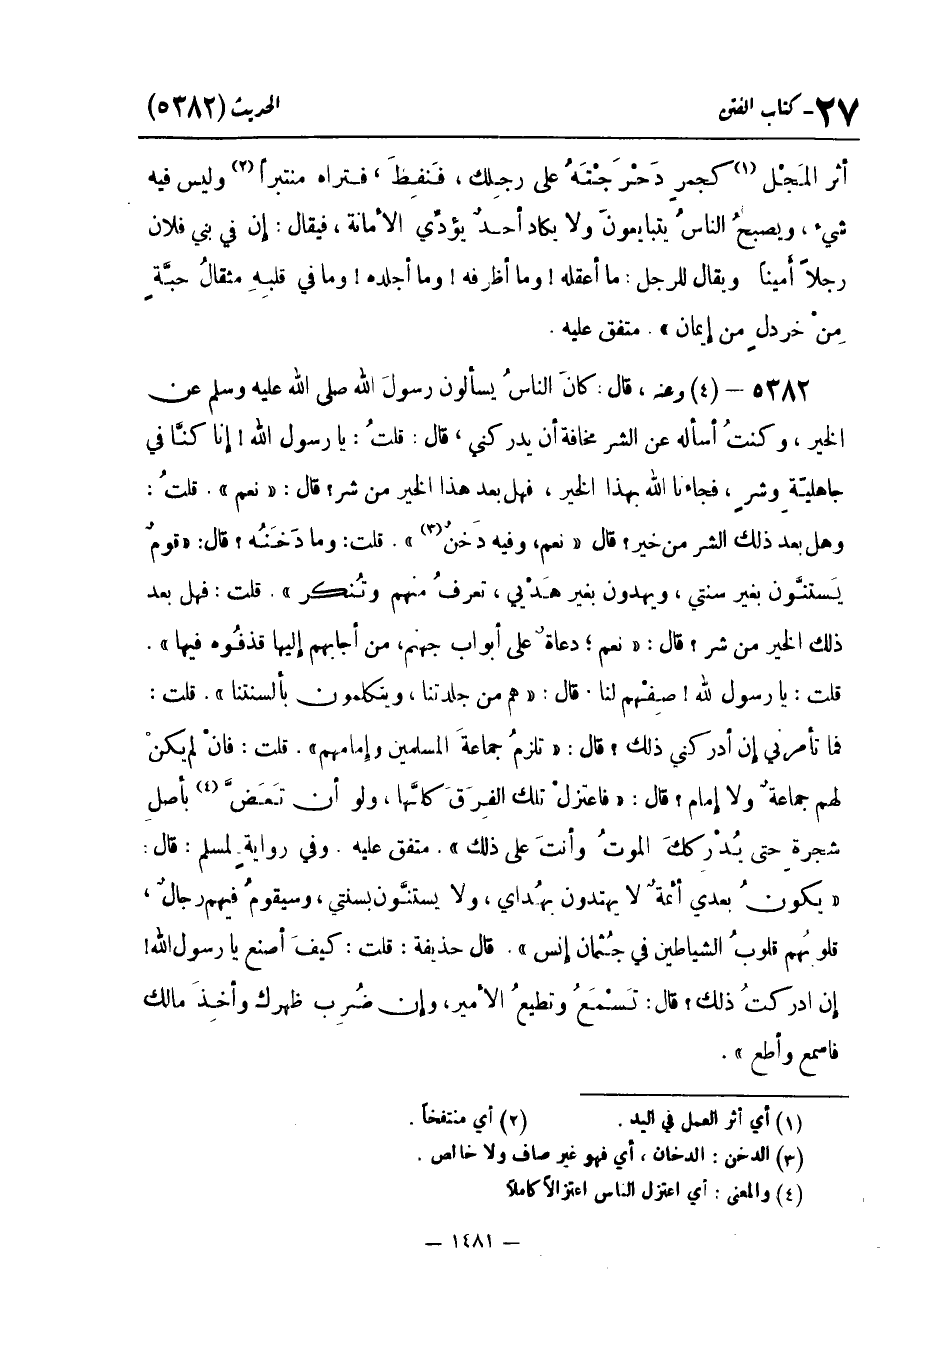 ٢٧ - كتاب الفتن الحديث (٥٣٨٢)
أثر المَجْل (١) كجمرٍ دَحْرَجْتَهُ على رجلِك ، فَنَفِطَ ، فتراه منتبراً (٢) وليس فيه
شيء ، ويصبحُ الناسُ يتبايعونَ ولا يكاد أحدٌ يؤدِّي الأمانة ، فيقال : إن في بني فلان
رجلاً أميناً ويقال للرجل : ما أعقله ! وما أظرفه ! وما أجلده ! وما في قلبِهِ مثقالُ حبَّةٍ
مِنْ خردلٍ من إيمان » . متفق عليه .
٥٣٨٢ – (٤) وعنه ، قال : كانَ الناسُ يسألون رسولَ الله صلى الله عليه وسلم عن
الخير ، وكنتُ أسأله عن الشر مخافة أن يدركني ، قال : قلتُ : يا رسول الله ! إنا كنَّا في
جاهليّةٍ وشرٍ ، فجاءنا الله بهذا الخير ، فهل بعد هذا الخير من شر ؟ قال : « نعم » . قلتُ :
وهل بعد ذلك الشر من خير ؟ قال « نعم، وفيه دَخنٌ (٣) » . قلت : وما دَخَنُه ؟ قال : « قومٌ
يَستنُّون بغير سنتي ، ويهدون بغير هَدْيي ، تعرفُ منهم وتُنكر » . قلت : فهل بعد
ذلك الخير من شر ؟ قال : « نعم ؛ دعاةٌ على أبواب جهنم، من أجابهم إليها قذفُوه فيها » .
قلت : يا رسول لله ! صفْهم لنا . قال : « هم من جلدتنا ، ويتكلمون بألسنتنا » . قلت :
فما تأمرني إن أدركني ذلك ؟ قال : « تلزمُ جماعةَ المسلمين وإمامهم» . قلت : فانْ لم يكنْ
لهم جماعةٌ ولا إمام ؟ قال : « فاعتزلْ تلك الفِرَقَ كلَّها ، ولو أن تَعَضَّ (٤) بأصلِ
شجرةٍ حتى يُدْرِككَ الموتُ وأنتَ على ذلك » . متفق عليه . وفي روايةٍ لمسلم : قال :
« يكونُ بعدي أئمةٌ لا يهتدون بهُداي ، ولا يستنُّون بسنتي ، وسيقومُ فيهم رجالٌ ،
قلوبُهم قلوبُ الشياطين في جُثمان إنس » . قال حذيفة : قلت : كيفَ أصنع يا رسول الله!
إن ادركتُ ذلك ؟ قال : تَسْمَعُ وتطيعُ الأمير، وإن ضُرِب ظهرك وأخِذَ مالك
فاسمع وأطع » .
(١) أي أثر العمل في اليد . (٢) أي منتفخاً .
(٣) الدخن : الدخان ، أي فهو غير صاف ولا خالص .
(٤) والمعنى : أي اعتزل الناس اعتزالاً كاملاً
– ١٤٨١ –